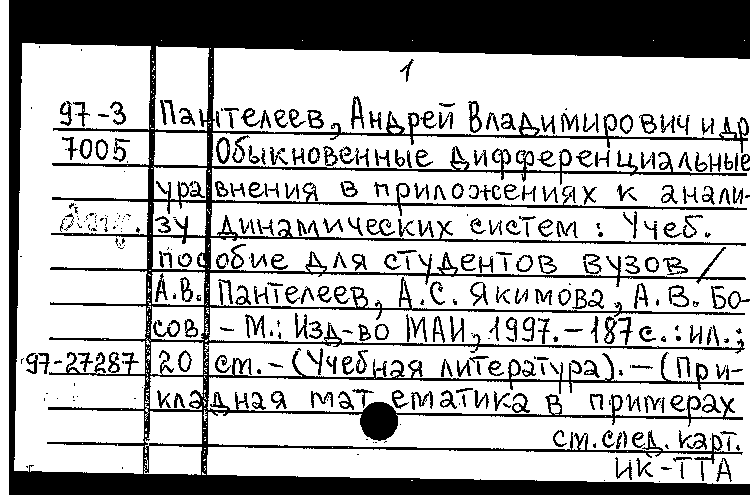 1
97-3 Пантелеев, Андрей Владимирович и др
7005 Обыкновенные дифференциальные
уравнения в приложениях к анали-
зу динамических систем : Учеб.
пособие для студентов вузов /
А.В. Пантелеев, А.С. Якимова, А.В. Бо-
сов. – М.: Изд-во МАИ, 1997. – 187 с. : ил.;
97-27287 20 см. – (Учебная литература). – (При-
кладная мат ематика в примерах
см. след. карт.
ИК-ТТА